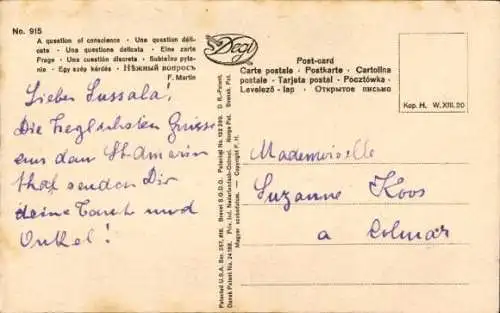 No. 915
A question of conscience · Une question déli-
cate · Une questione delicata · Eine zarte
Frage · Une cuestión discreta · Subtelne pyta-
nie · Egy szép kérdés · Нѣжный вопросъ
F. Martin
Lieber Sussala!
Die herzlichsten Grüsse
aus dem St. Amarin
thal senden Dir
deine Tante und
Onkel!
Degi
D. R.-Patent.
Patented U.S.A. Ser. 257, 616. Brevet S.G.D.G. Patent No. 132 260. Svensk. Pat.
Dansk Patent No. 24 188. Priv. Ind. Nederlandsch-Octrooi. Norge Pat.
Magyar szabadalom. Copyright F. H.
Post-card
Carte postale · Postkarte · Cartolina
postale · Tarjeta postal · Pocztówka ·
Levelező-lap · Открытое письмо
Kop. H. W. XIII, 20
Mademoiselle
Suzanne Koos
a Colmar